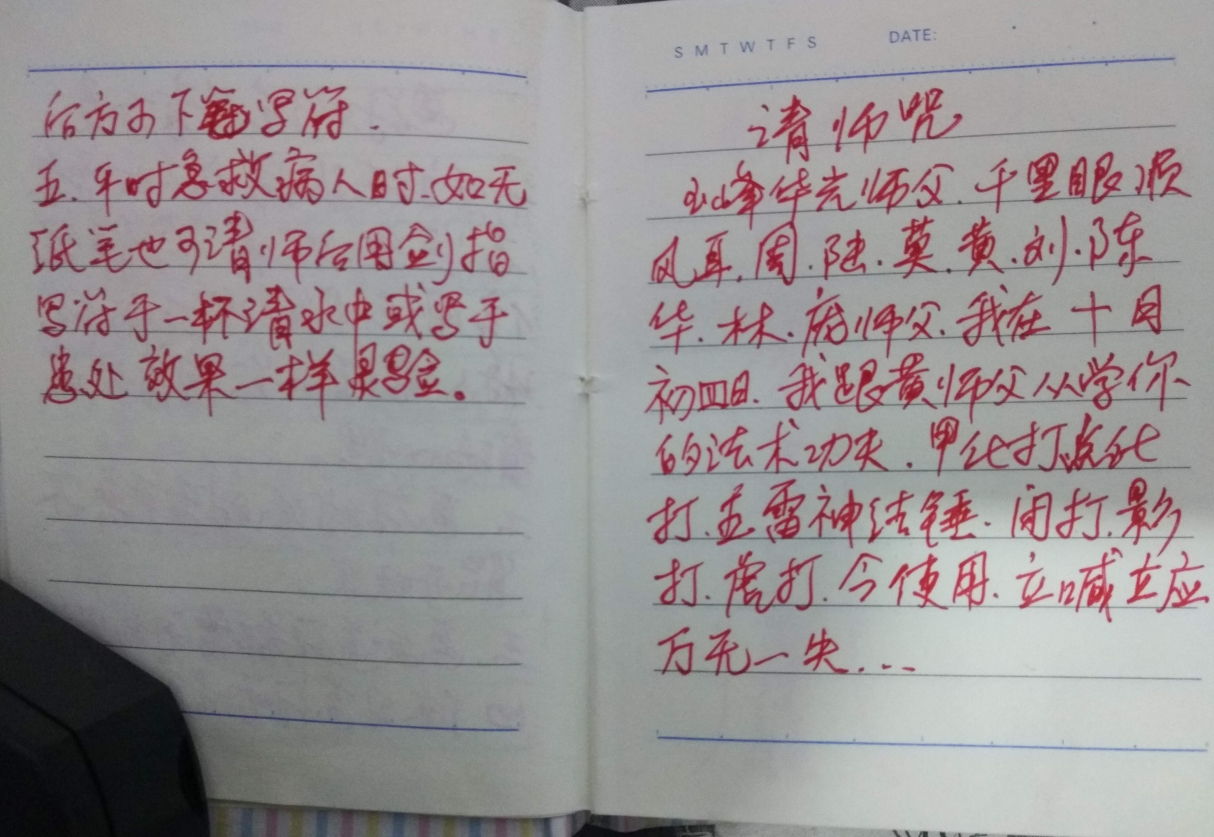 后方可下笔写符.
五.平时急救病人时.如无
纸笔也可请师后用剑指
写符于一杯清水中或写于
患处效果一样灵验。
S M T W T F S DATE:
请师咒
山峰华光师父.千里眼顺
风耳.周.陆.莫.黄.刘.陈
华.林.唐师父.我在十月
初四日.我跟黄师父从学你
的法术功夫.甲化打.点化
打.五雷神法锤.闭打.影
打.虎打.今使用.立喊立应
万无一失...